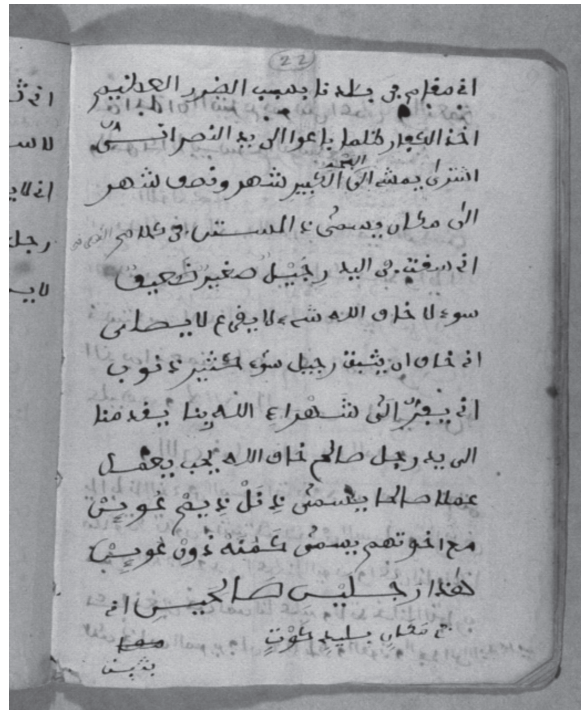 22
انى مقام فى بلدنا بسبب الضرر العظيم
اخذ الكفار ظلما باعوا الى يد النصرانى
اشترى يمشى الى البحر الكبير شهر ونصف شهر
الى مكان يسمى ذ المستن فى كلام
انى سقت فى اليد رجيل صغير ضعيف
سوء لا خاف الله شىء لا يقرع لا يصلى
انى خاف ان يثبت رجيل سوء كثير ذنوب
انى يفر الى شهراء الله ربنا يقدمنا
الى يد رجل صالح خاف الله يحب يعمل
عملا صالحا يسمى ذِ نَلْ ذِيمْ غوين
مع اخوتهم يسمى كَمْنَهْ ذون غوين
هٰذا رجلين صالحين انى
فى مكان بليد كوت
يثبت